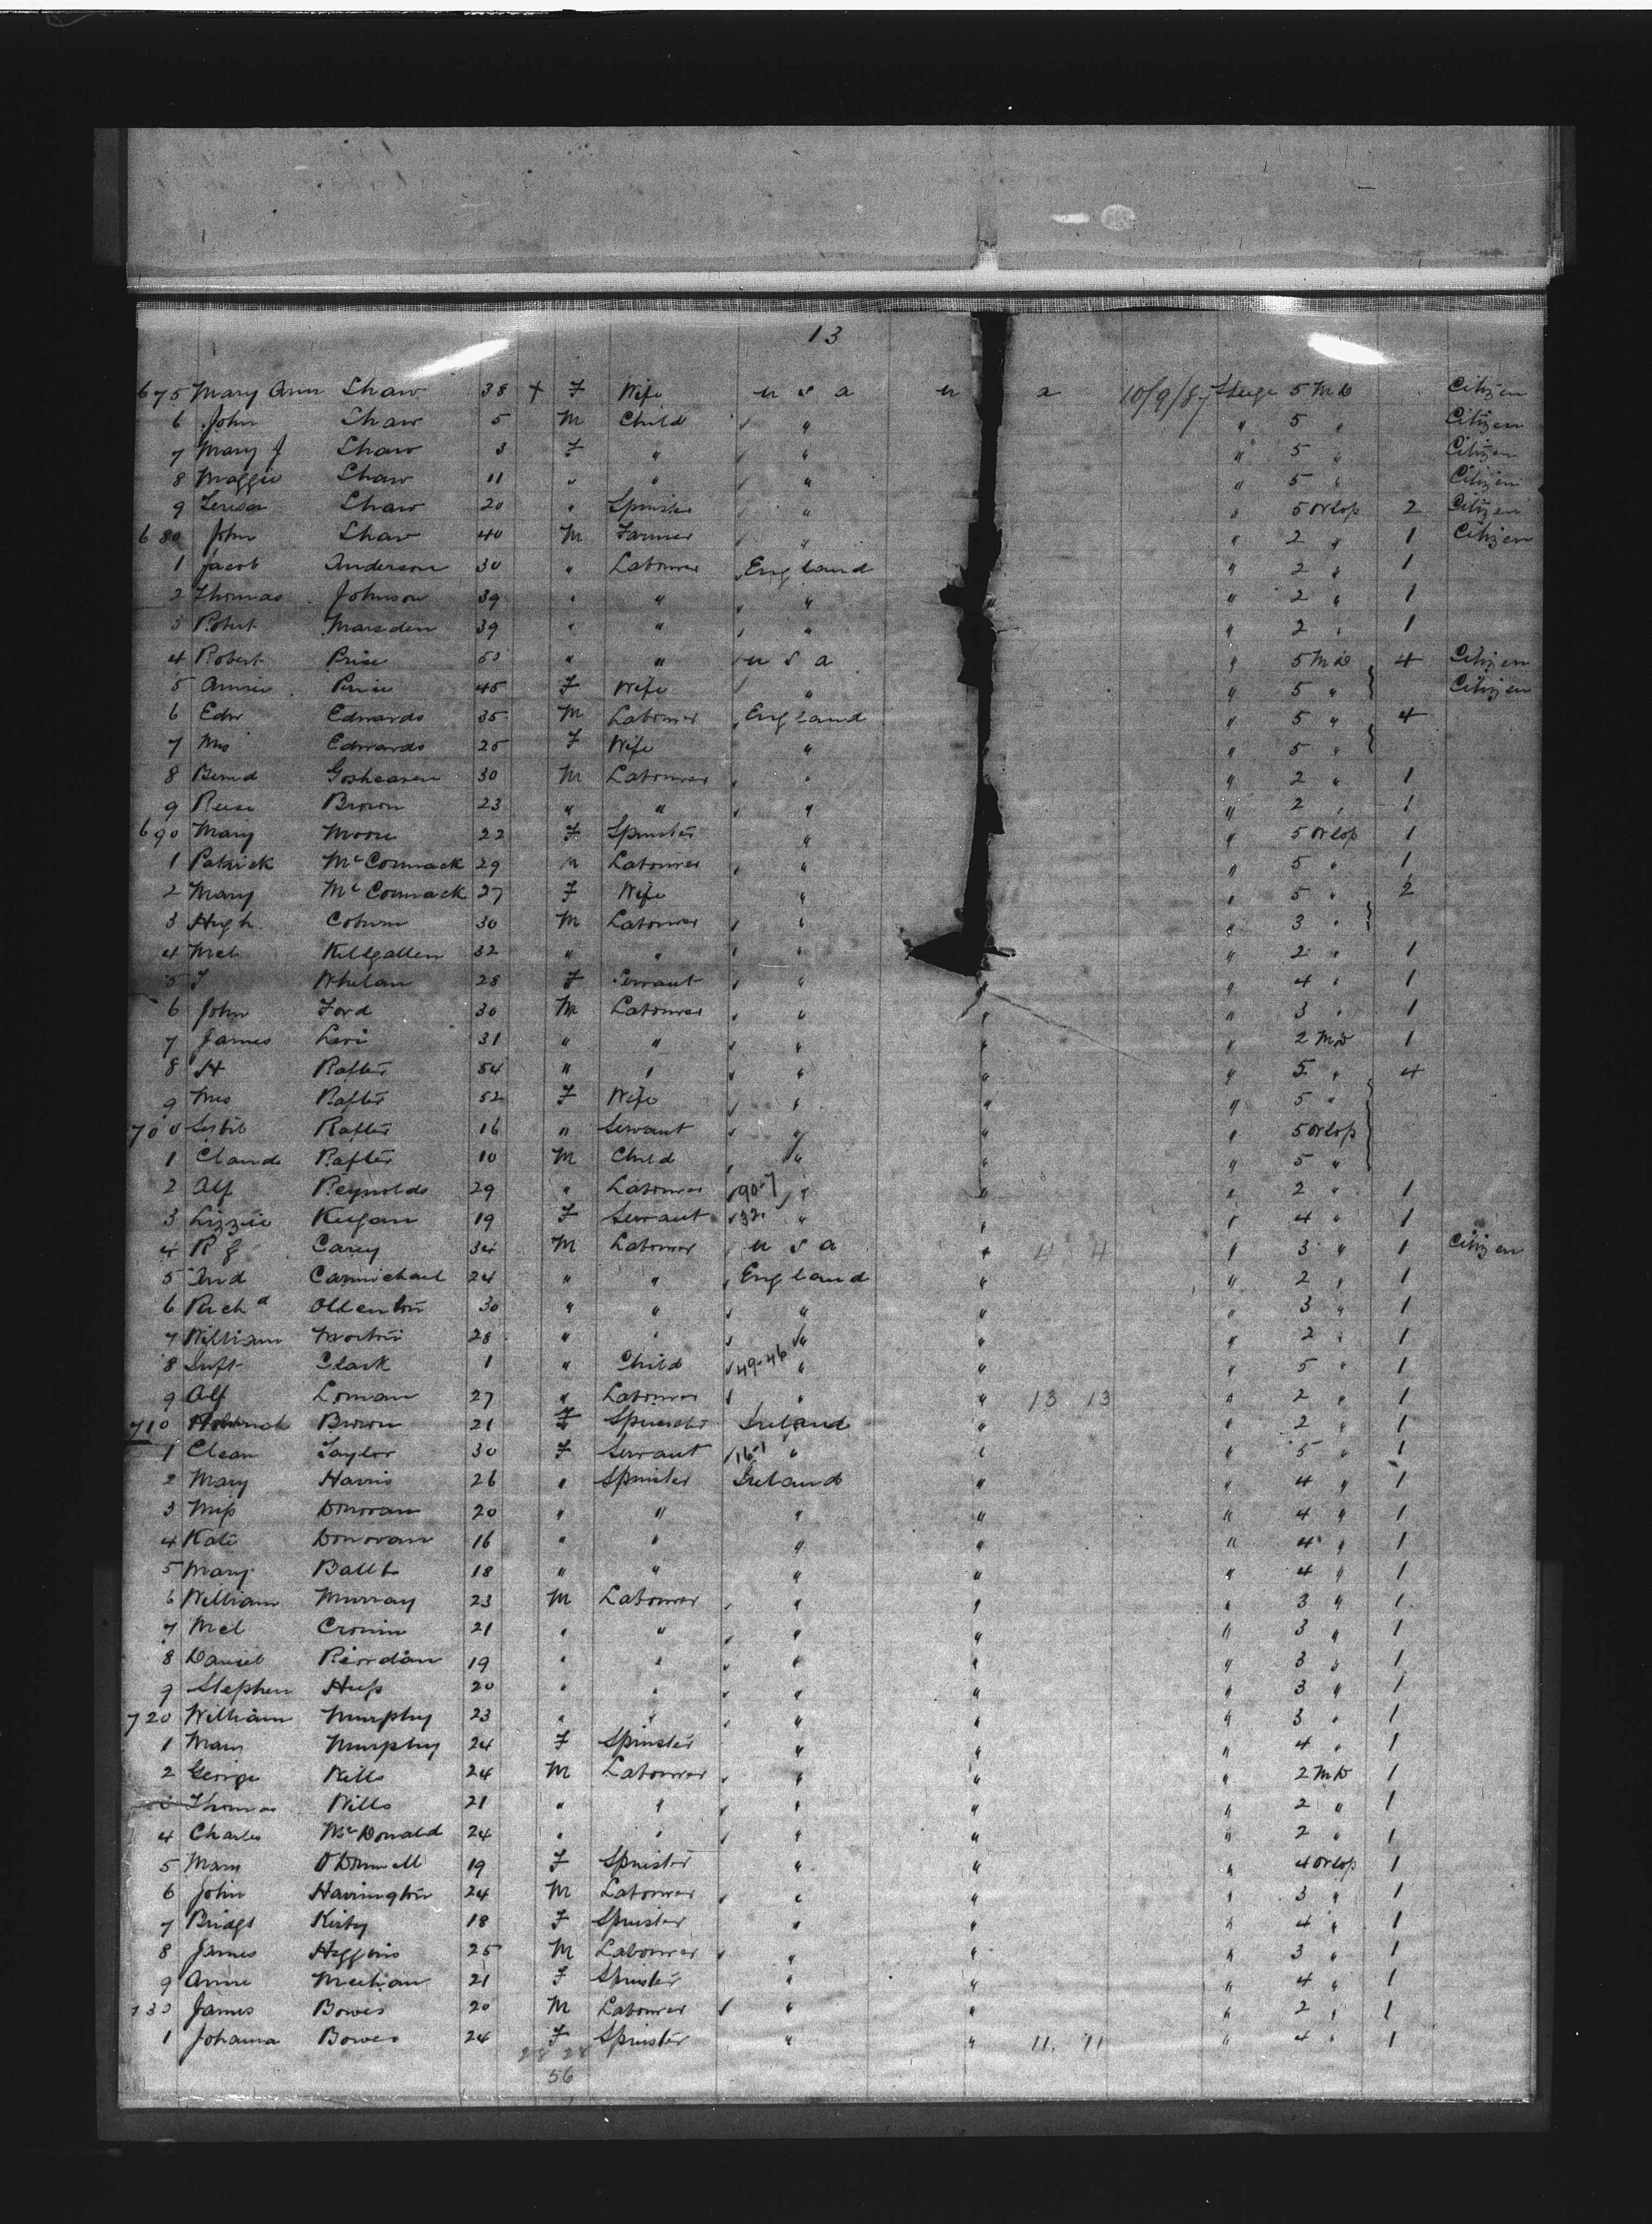 13
675 Mary Ann Shaw 38 + F Wife U S A U a 10/9/87 Steige 5 M D Citizen
6 John Shaw 5 M Child " " 5 " Citizen
7 Mary J Shaw 3 F " " " 5 " Citizen
8 Maggie Shaw 11 " " " " 5 " Citizen
9 Teresa Shaw 20 " Spinster " " 5 Orlop 2 Citizen
680 John Shaw 40 M Farmer " " 2 " 1 Citizen
1 Jacob Anderson 30 " Labourer England " 2 " 1
2 Thomas Johnson 39 " " " " 2 " 1
3 Robert Marsden 39 " " " " 2 " 1
4 Robert Price " " U S A " 5 M D 4 Citizen
5 Annie Price 45 F Wife " " 5 " Citizen
6 Edw Edwards 35 M Labourer England " 5 " 4
7 Mrs Edwards 25 F Wife " " 5 "
8 Bernd 30 M Labourer " " 2 " 1
9 Brown 23 " " " " 2 " 1
690 Mary Moore 22 F Spinster " " 5 Orlop 1
1 Patrick McCormack 29 M Labourer " " 5 " 1
2 Mary McCormack 27 F Wife " " 5 " 2
3 Hugh Coburn 30 M Labourer " " 3 "
4 Mcl Killgallen 32 " " " " 2 " 1
5 Whelan 28 F Servant " " " 4 " 1
6 John Ford 30 M Labourer " " " 3 " 1
7 James Levi 31 " " " " " 2 M D 1
8 H Rafter 54 " " " " " 5 " 4
9 Mrs Rafter 52 F Wife " " " 5 "
700 Rafter 16 " Servant " " " 5 Orlop
1 Claude Rafter 10 M Child " " " 5 "
2 Alf Reynolds 29 " Labourer 90-7 " " " 2 " 1
3 Lizzie Keegan 19 F Servant 32 " " " 4 " 1
4 R J Carey 34 M Labourer U S A " 4 4 " 3 " 1 Citizen
5 And Carmichael 24 " " England " " 2 " 1
6 Richd Ollenton 30 " " " " " 3 " 1
7 William Morton 28 " " " " " 2 " 1
8 Inft Clark 1 " Child 49-46 " " " 5 " 1
9 Alf Loman 27 " Labourer " " 13 13 " 2 " 1
710 Brown 21 F Spinster Ireland " " 2 " 1
1 Taylor 30 F Servant 16-1 " " " 5 " 1
2 Mary Harris 26 " Spinster Ireland " " 4 " 1
3 Miss Donovan 20 " " " " " 4 " 1
4 Kate Donovan 16 " " " " " 4 " 1
5 Mary 18 " " " " " 4 " 1
6 William Murray 23 M Labourer " " " 3 " 1
7 Mcl Cronin 21 " " " " " 3 " 1
8 Daniel Riordan 19 " " " " " 3 " 1
9 Stephen 20 " " " " " 3 " 1
720 William Murphy 23 " " " " " 3 " 1
1 Mary Murphy 24 F Spinster " " " 4 " 1
2 George Wills 24 M Labourer " " " 2 M D 1
3 Thomas Wills 21 " " " " " 2 " 1
4 Charles McDonald 24 " " " " " 2 " 1
5 Mary O'Donnell 19 F Spinster " " " 4 Orlop 1
6 John Harrington 24 M Labourer " " " 3 " 1
7 Bridgt Kirby 18 F Spinster " " " 4 " 1
8 James Higgins 25 M Labourer " " " 3 " 1
9 Anne Meehan 21 F Spinster " " " 4 " 1
730 James Bowes 20 M Labourer " " " 2 " 1
1 Johanna Bowes 24 F Spinster " " 11 11 " 4 " 1
28 28
56